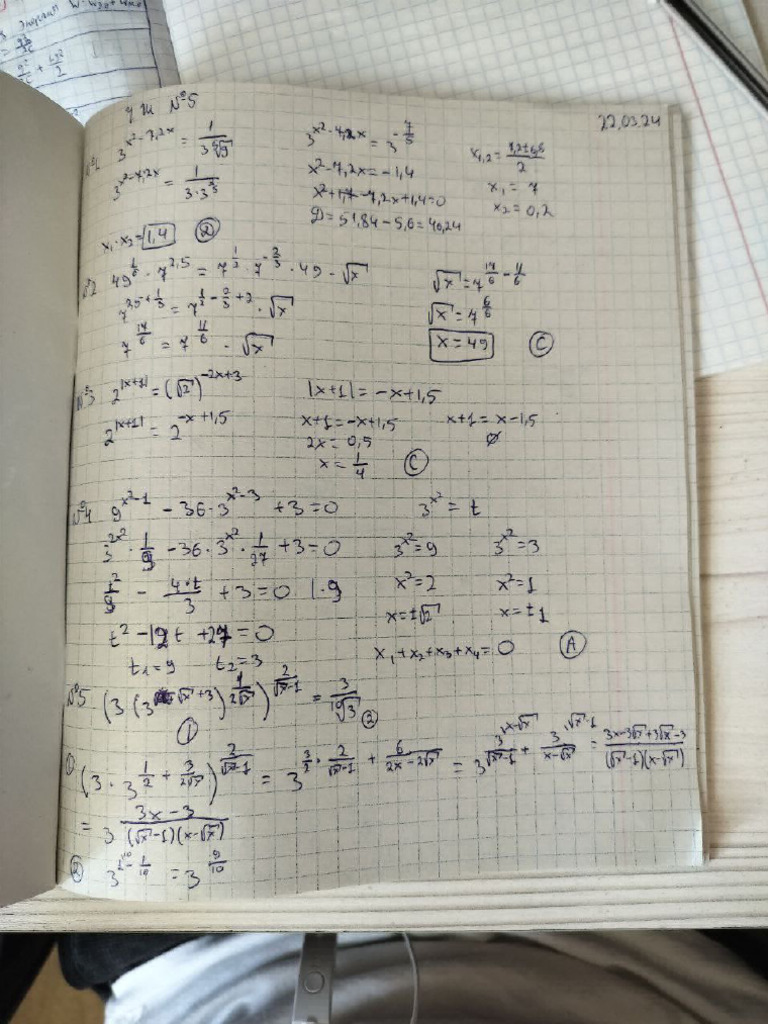 22,03.24
№5
3^{x²-7,2x} = 1/(3\sqrt[5]{9})
3^{x²-7,2x} = 1/(3·3^{2/5})
3^{x²-7,2x} = 3^{-7/5}
x²-7,2x = -1,4
x²-7,2x+1,4=0
D = 51,84 - 5,6 = 46,24
x_{1,2} = (7,2±6,8)/2
x₁ = 7
x₂ = 0,2
x₁·x₂ = 1,4 Ⓓ
№2 49^{1/6} · 7^{2,5} = 7^{1/2} · 7^{-2/3} · 49 · √x
7^{2,5+1/3} = 7^{1/2-2/3+2} · √x
7^{17/6} = 7^{11/6} · √x
√x = 7^{17/6-11/6}
√x = 7^{6/6}
x = 49 Ⓒ
№3 2^{|x+1|} = (√2)^{-2x+3}
2^{|x+1|} = 2^{-x+1,5}
|x+1| = -x+1,5
x+1 = -x+1,5 x+1 = x-1,5
2x = 0,5 ∅
x = 1/4 Ⓒ
№4 9^{x²-1} - 36·3^{x²-3} + 3 = 0
3^{2x²} · 1/9 - 36·3^{x²} · 1/27 + 3 = 0
t²/9 - 4·t/3 + 3 = 0 |·9
t² - 12t + 27 = 0
t₁ = 9 t₂ = 3
3^{x²} = t
3^{x²} = 9 3^{x²} = 3
x² = 2 x² = 1
x = ±√2 x = ±1
x₁+x₂+x₃+x₄ = 0 Ⓐ
№5 (3·(3^{√x+3})^{1/(2√x)})^{2/(√x-1)} = 3/\sqrt[10]{3}
① ②
① (3 · 3^{1/2 + 3/(2√x)})^{2/(√x-1)} = 3^{3/2 · 2/(√x-1) + 6/(2x-2√x)} = 3^{3/(√x-1) + 3/(x-√x)} = (3x-3√x+3√x-3)/((√x-1)(x-√x))
= 3^{(3x-3)/((√x-1)(x-√x))}
② 3^{1-1/10} = 3^{9/10}